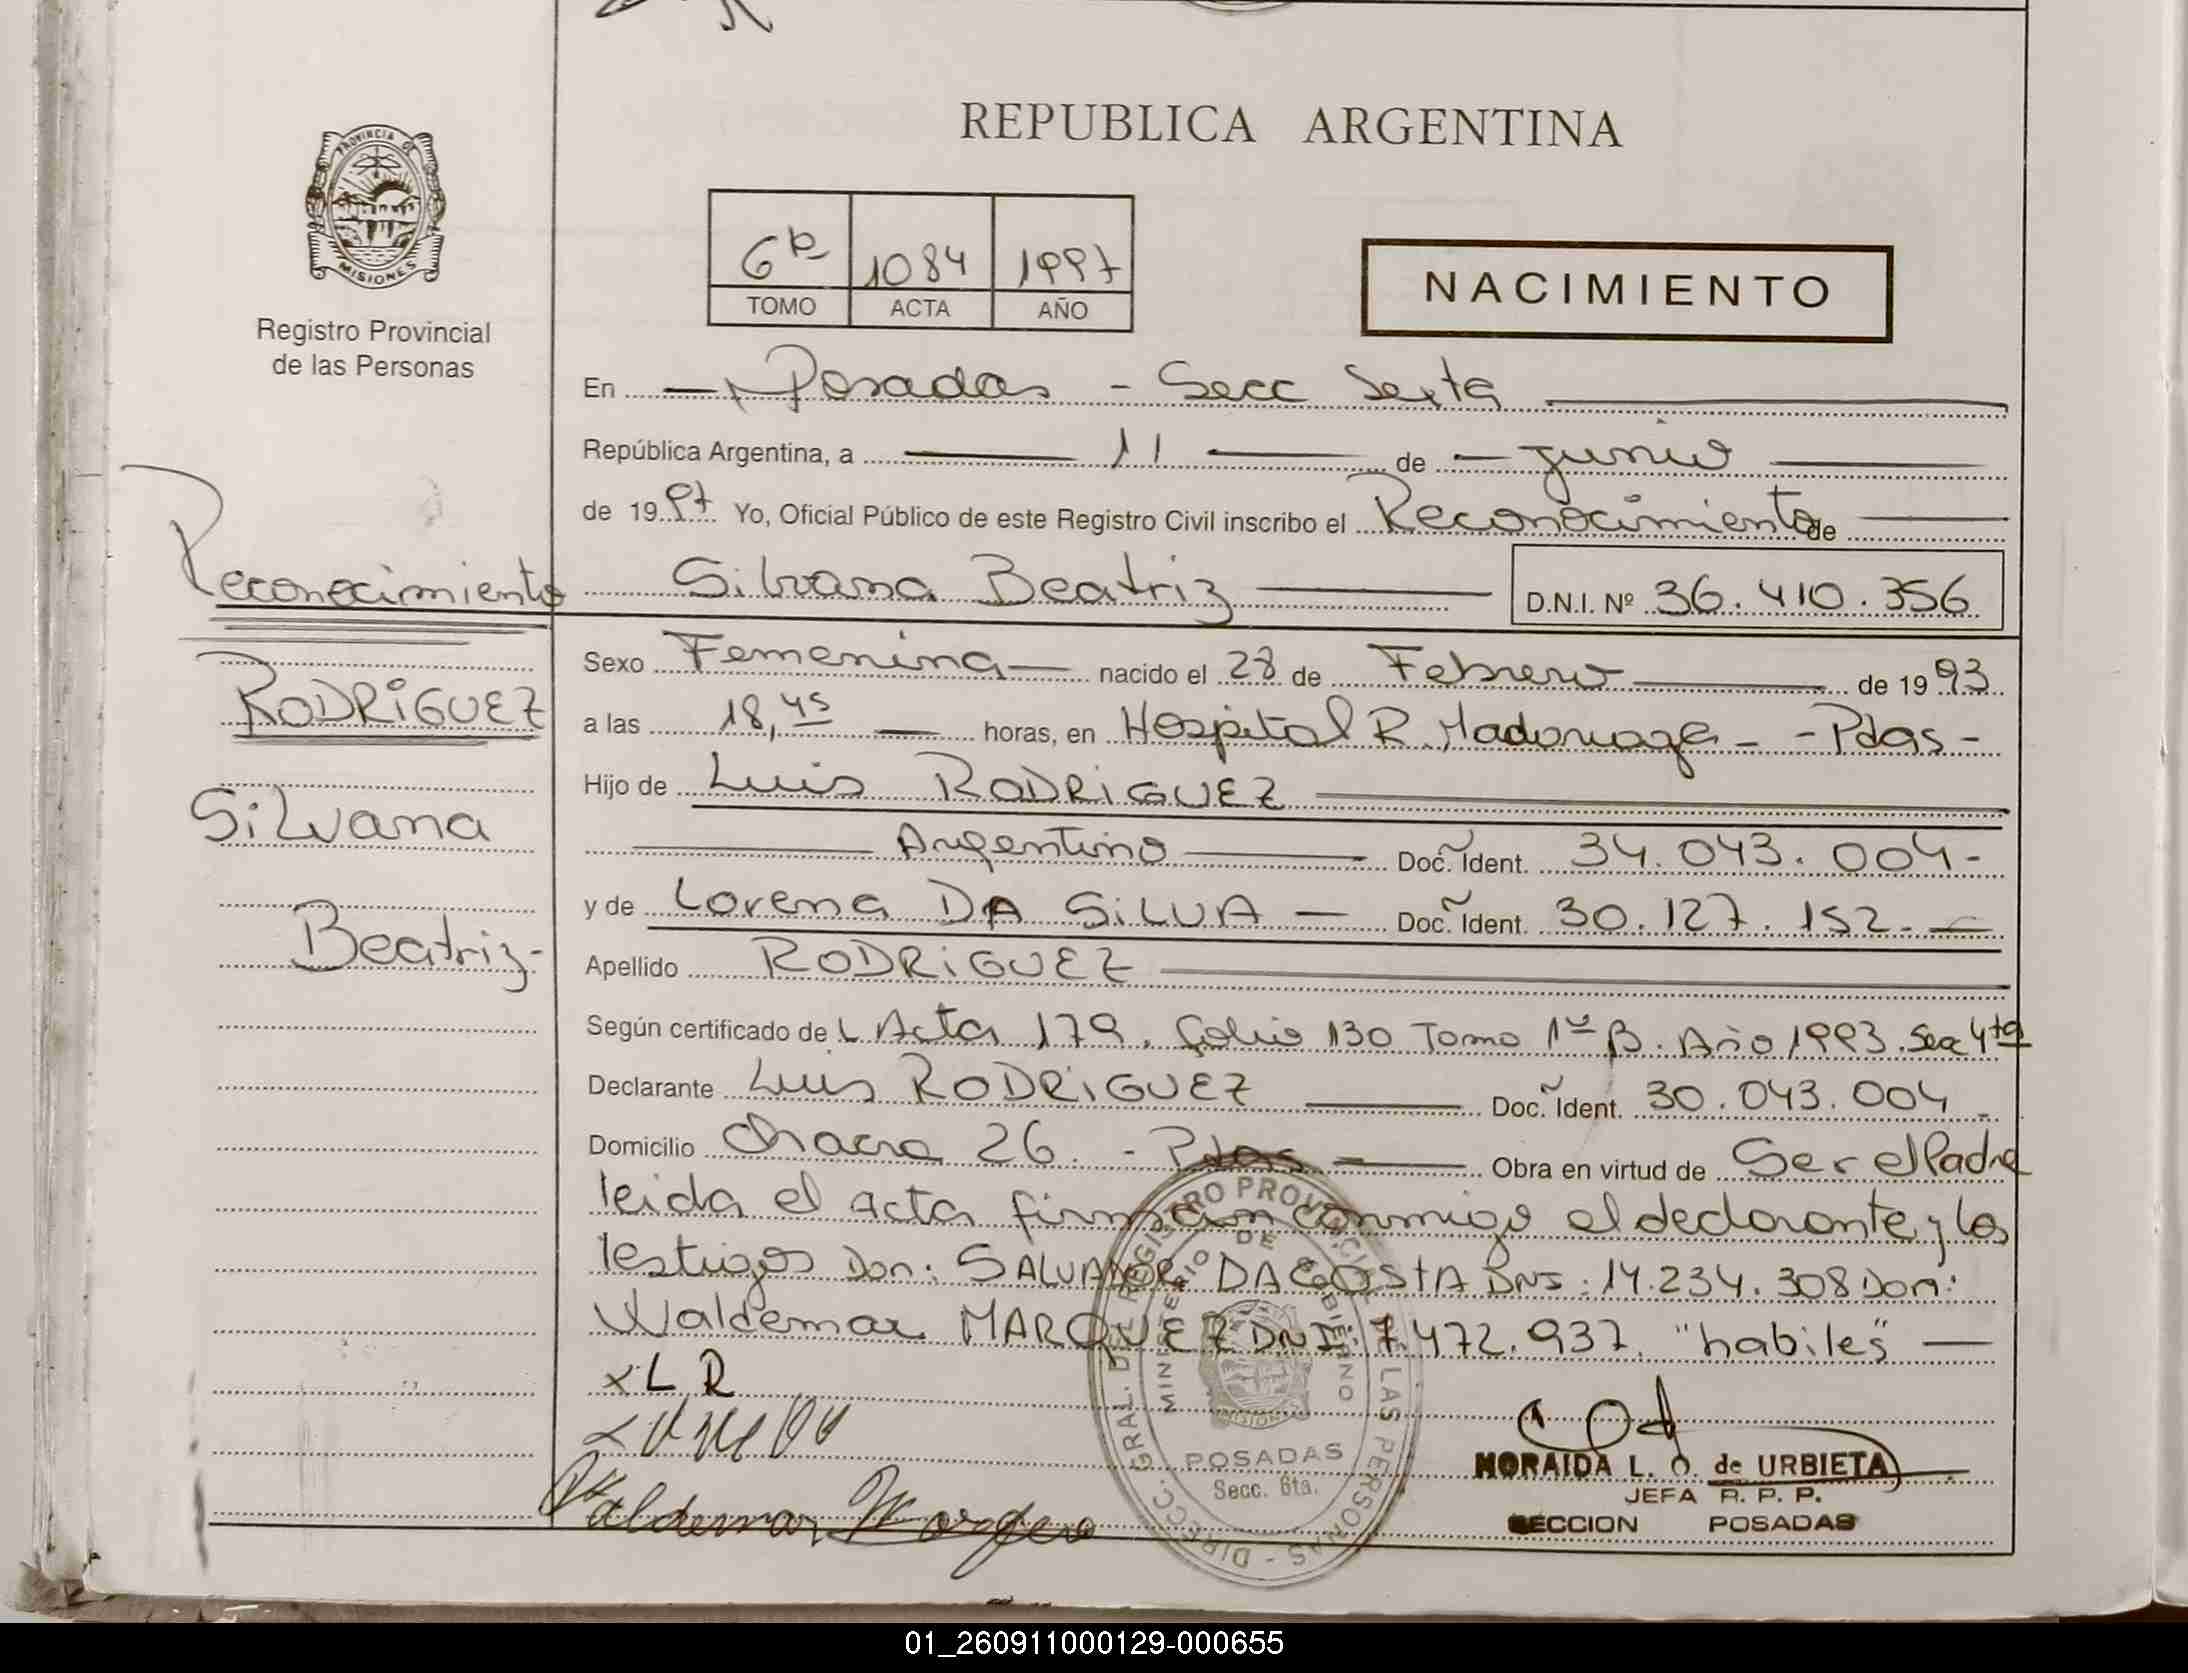 REPUBLICA ARGENTINA
PROVINCIA DE
MISIONES
Registro Provincial
de las Personas
1084 1997
TOMO ACTA AÑO
NACIMIENTO
En Posadas - Secc Sexta
República Argentina, a 11 de junio
de 1997 Yo, Oficial Público de este Registro Civil inscribo el Reconocimiento de
Silvana Beatriz D.N.I. Nº 36.410.356
Reconocimiento
RODRIGUEZ
Silvana
Beatriz-
Sexo Femenina nacido el 28 de Febrero de 1993
a las 18,45 horas, en Hospital R. Madariaga - - Pdas -
Hijo de Luis RODRIGUEZ
Argentino Doc. Ident. 34.043.004-
y de Lorena DA SILVA - Doc. Ident. 30.127.152.-
Apellido RODRIGUEZ
Según certificado de Acta 179. folio 130 Tomo 1º B. Año 1993. Secc 4ta
Declarante Luis RODRIGUEZ Doc. Ident. 30.043.004
Domicilio Chacra 26. - Pdas Obra en virtud de Ser el Padre
leida el acta firman conmigo el declarante y los
testigos Don: SALVADOR DA COSTA DNI: 14.234.308 Don:
Waldemar MARQUEZ DNI 7.472.937. "habiles"
x L R
Waldemar
DIRECC. GRAL. DEL REGISTRO PROVINCIAL DE LAS PERSONAS
MINISTERIO DE GOBIERNO
MISIONES
POSADAS
Secc. 6ta.
NORAIDA L. O. de URBIETA
JEFA R. P. P.
SECCION POSADAS
01_260911000129-000655